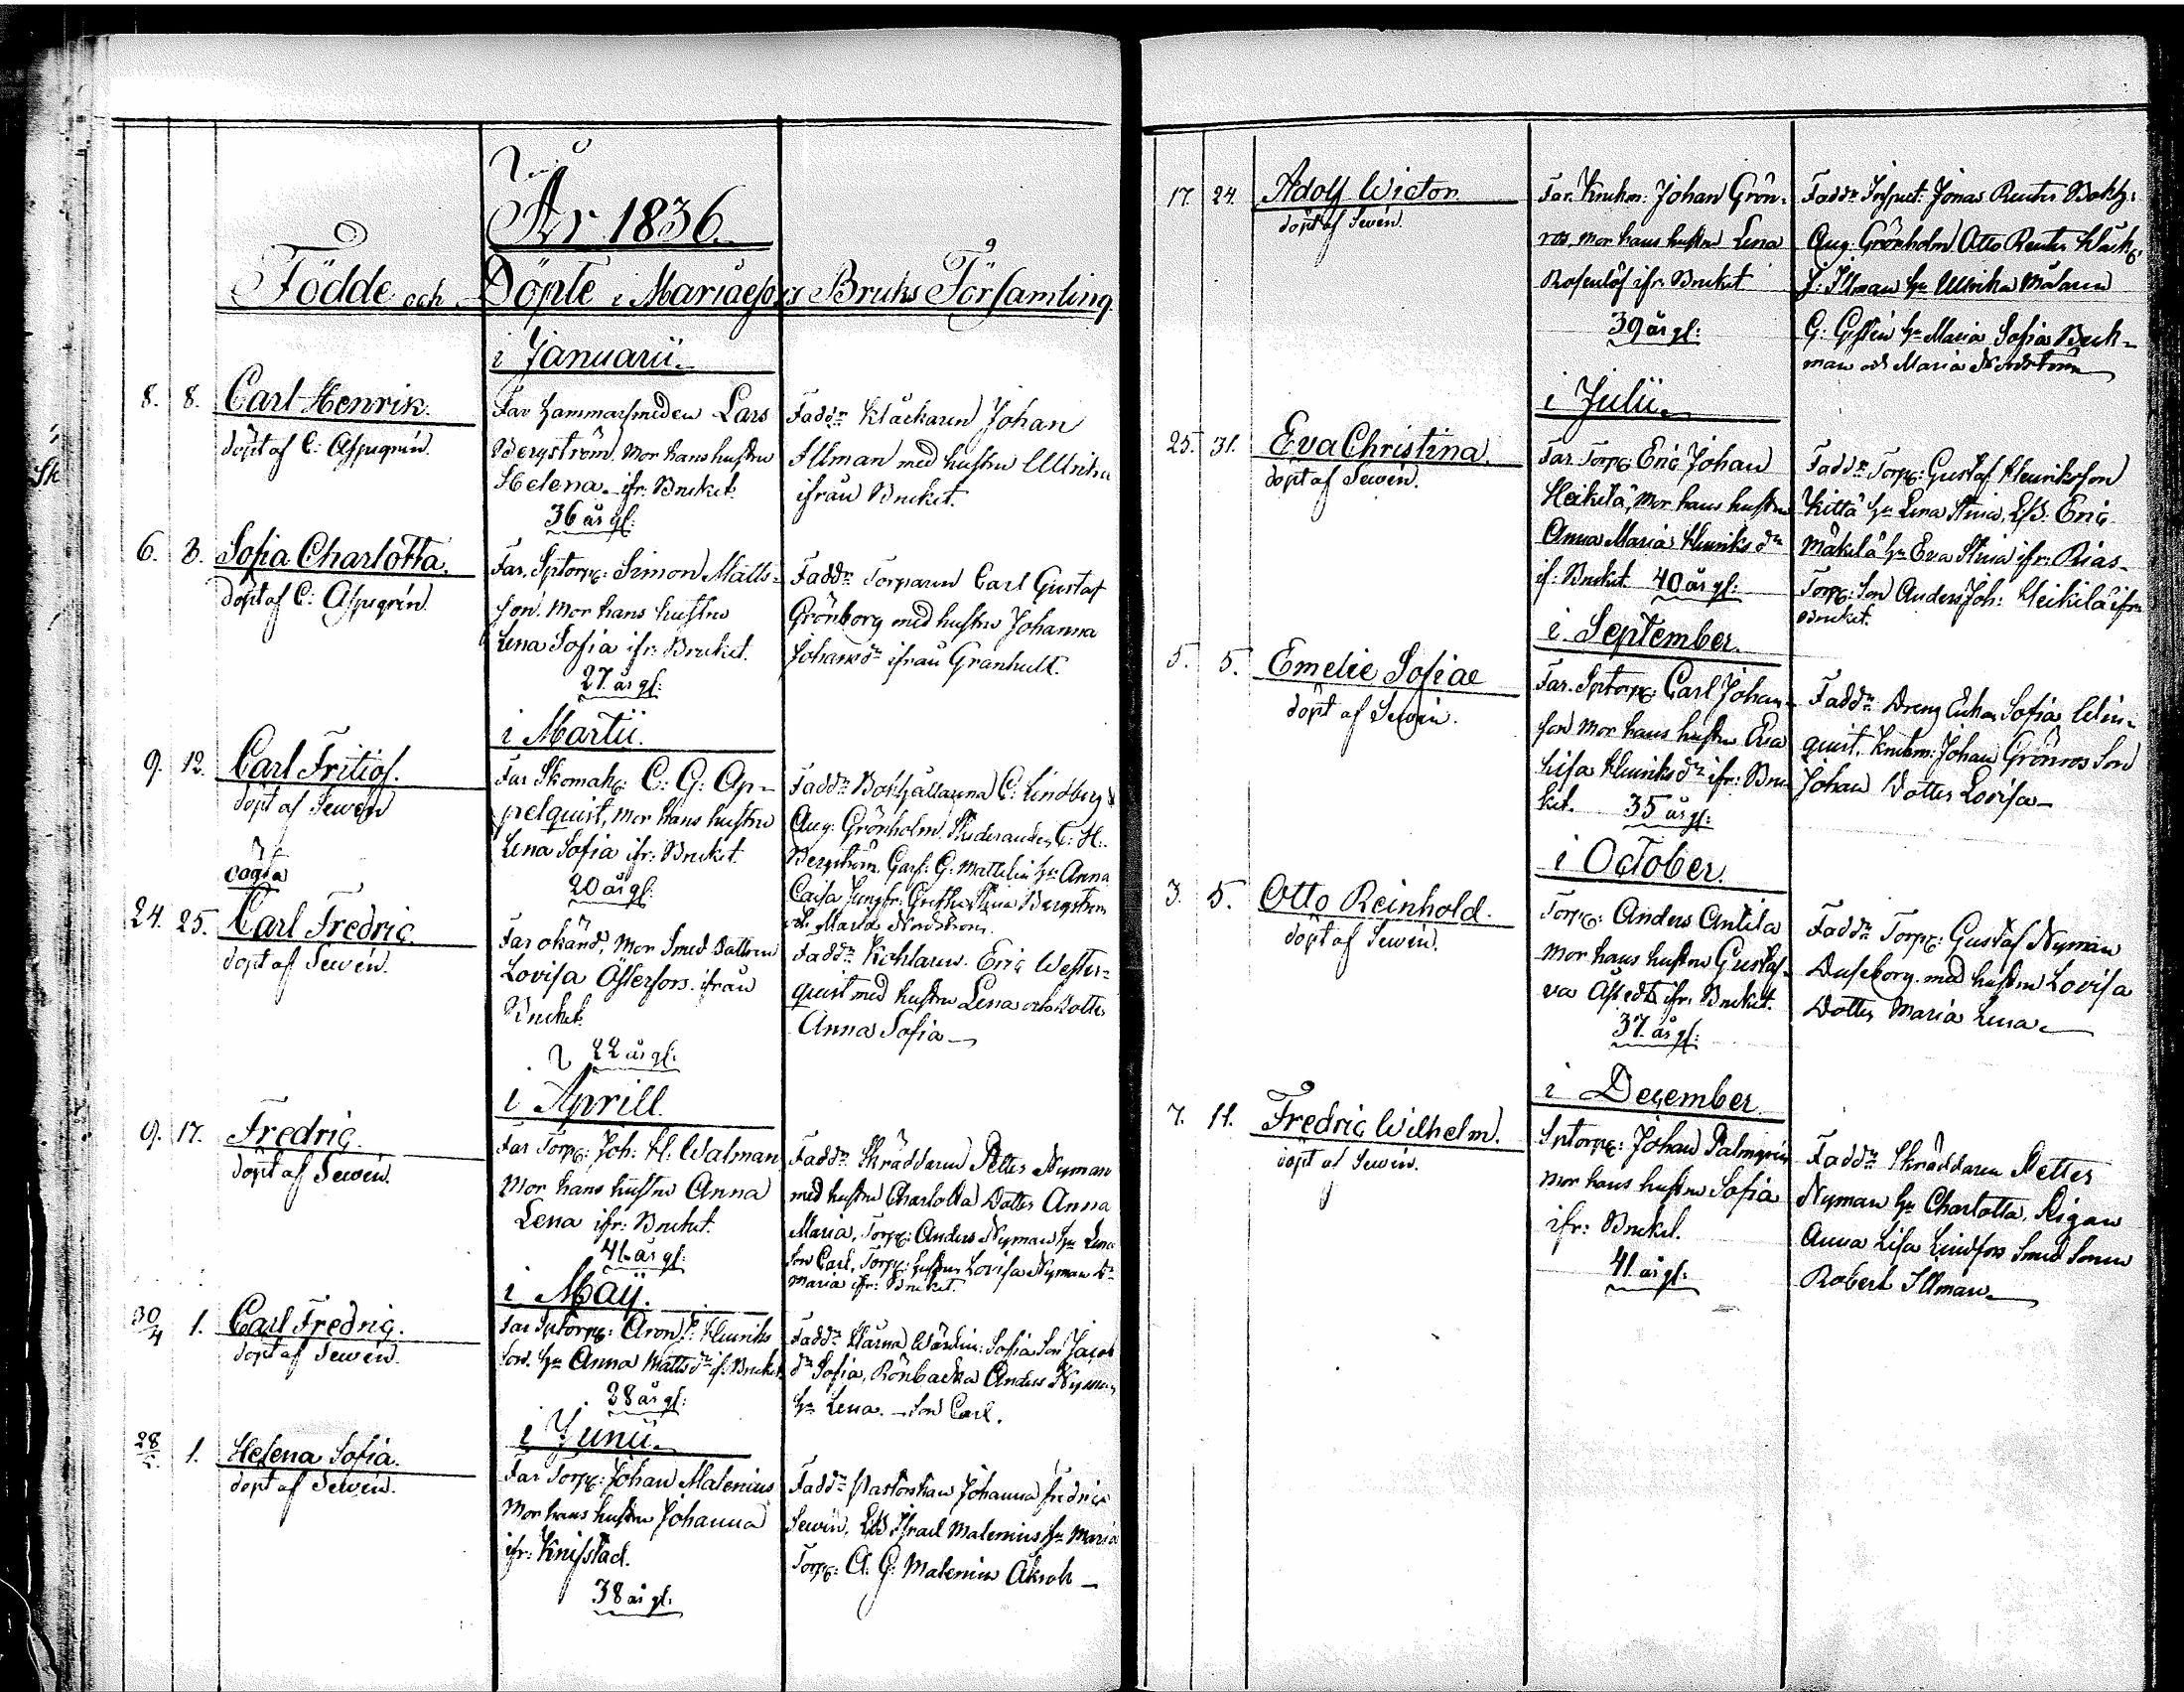 År 1836.
Födde och Döpte i Mariæfors Bruks Församling.
i Januarii.
8. 8. Carl Henrik.
döpt af C: Aspegrén.
Far Hammarsmeden Lars
Bergström. Mor hans hustru
Helena ifr: Bruket.
36 år gl:
Fadd:r Klåckaren Johan
Illman med hustru Ullrika
ifrån Bruket.
6. 8. Sofia Charlotta.
döpt af C: Aspegrén.
Far. Sptorp: Simon Matts-
son. Mor hans hustru
Lena Sofia ifr: Bruket.
27 år gl:
Fadd:r Torparen Carl Gustaf
Grönborg med hustru Johanna
Johansd:r ifrån Granhult.
i Martii.
9. 12. Carl Fritiof.
döpt af Sewén
Far Skomak: C: G: Ap-
pelquist, Mor hans hustru
Lena Sofia ifr: Bruket.
20 år gl:
Fadd:r Bokhållarna C: Lindberg &
Aug: Grönholm, Studeranden C: H:
Bergström. Garf: G: Mattelin h:u Anna
Caisa Jungfr: Greta Stina Bergström
Maria Nordström.
oägta
24. 25. Carl Fredric.
döpt af Sewén.
Far okänd, Mor Smed Dottren
Lovisa Österfors. ifrån
Bruket.
22 år gl:
Fadd:r Kohlaren. Eric Wester-
quist med hustru Lena och Dotter
Anna Sofia
i Aprill.
9. 17. Fredric.
döpt af Sewén.
Far Torp: Joh: H: Walman
Mor hans hustru Anna
Lena ifr: Bruket.
41 år gl:
Fadd:r Skräddaren Petter Nyman
med hustru Charlotta Dotter Anna
Maria, Torp: Anders Nyman h:u Lena
Son Carl, Torp: hustru Lovisa Nyman D:r
Maria ifr: Bruket.
i Maij.
30/4 1. Carl Fredric.
döpt af Sewén.
Far Sptorp: Aron Henriks
son. h:u Anna Mattsd:r if: Bruket
38 år gl:
Sofia Son Jacob
d:r Sofia, Rönbacka Anders Nyman
h:u Lena. Son Carl.
i Junii.
28/5. 1. Helena Sofia.
döpt af Sewén.
Far Torp: Johan Malenius
Mor hans hustru Johanna
ifr: Knifstad.
38 år gl:
Fadd:r Pastorskan Johanna Fredrica
Sewén. Israel Malenius h:u Maria
Torp: A: G: Malenius
17. 24. Adolf Wictor.
döpt af Sewén.
Far. Johan Grön-
ros, Mor hans hustru Lena
Rosenlöf ifr: Bruket
39 år gl:
Fadd:r Inspect: Jonas Reuter Bokh:
Aug: Grönholm Otto Reuter Klåck:
J: Illman h:u Ullrika Målaren
G: h:u Maria Sofia Beck-
man och Maria Nordström
i Julii.
25. 31. Eva Christina.
döpt af Sewén.
Far. Torp: Eric Johan
Heikilä, Mor hans hustru
Anna Maria Henriks d:r
if: Bruket. 40 år gl:
Fadd:r Torp: Gustaf Henriksson
Kittä h:u Lena Stina, Eric
Mäkilä h:u Eva Stina ifr:
Torp: Son Anders Joh: Heikilä ifrn
Bruket.
i September.
5. 5. Emelie Sofiae
döpt af Sewén.
Far. Sptorp: Carl Johan-
son Mor hans hustru Eva
Lisa Henriksd:r ifr: Bru-
ket. 35 år gl:
Fadd:r Dreng Enkan Sofia Win-
quist. Johan Grönros Son
Johan Dotter Lovisa
i October.
3. 5. Otto Reinhold.
döpt af Sewén.
Torp: Anders Antila
Mor hans hustru Gustaf-
va ifr: Bruket.
37 år gl:
Fadd:r Torp: Gustaf Nyman
Duseborg. med hustru Lovisa
Dotter Maria Lena
i December.
7. 11. Fredric Wilhelm.
döpt af Sewén.
Sptorp: Johan Palmgrén
Mor hans hustru Sofia
ifr: Bruket.
41 år gl:
Fadd:r Skräddaren Petter
Nyman h:u Charlotta. Pigan
Anna Lisa Lindfors Smed Sonen
Robert Illman